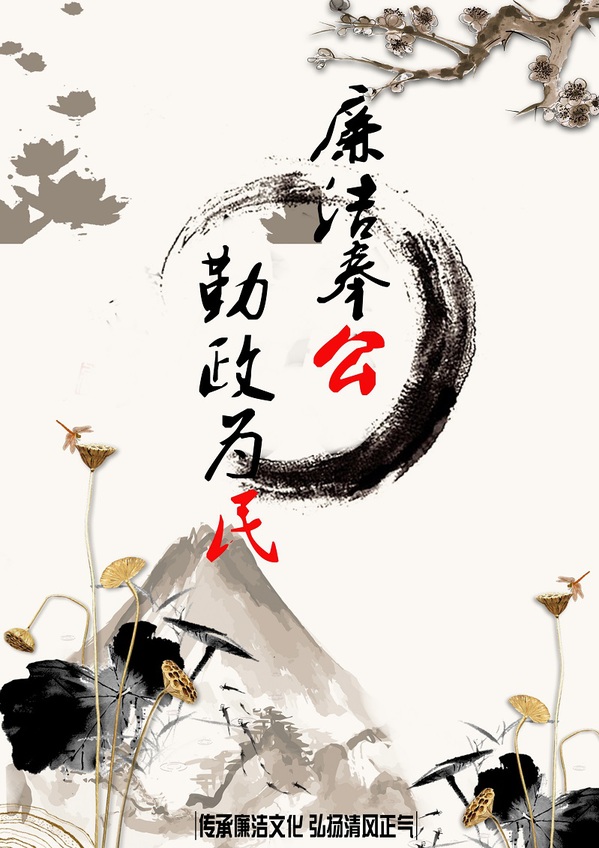 廉洁奉公
勤政为民
传承廉洁文化 弘扬清风正气